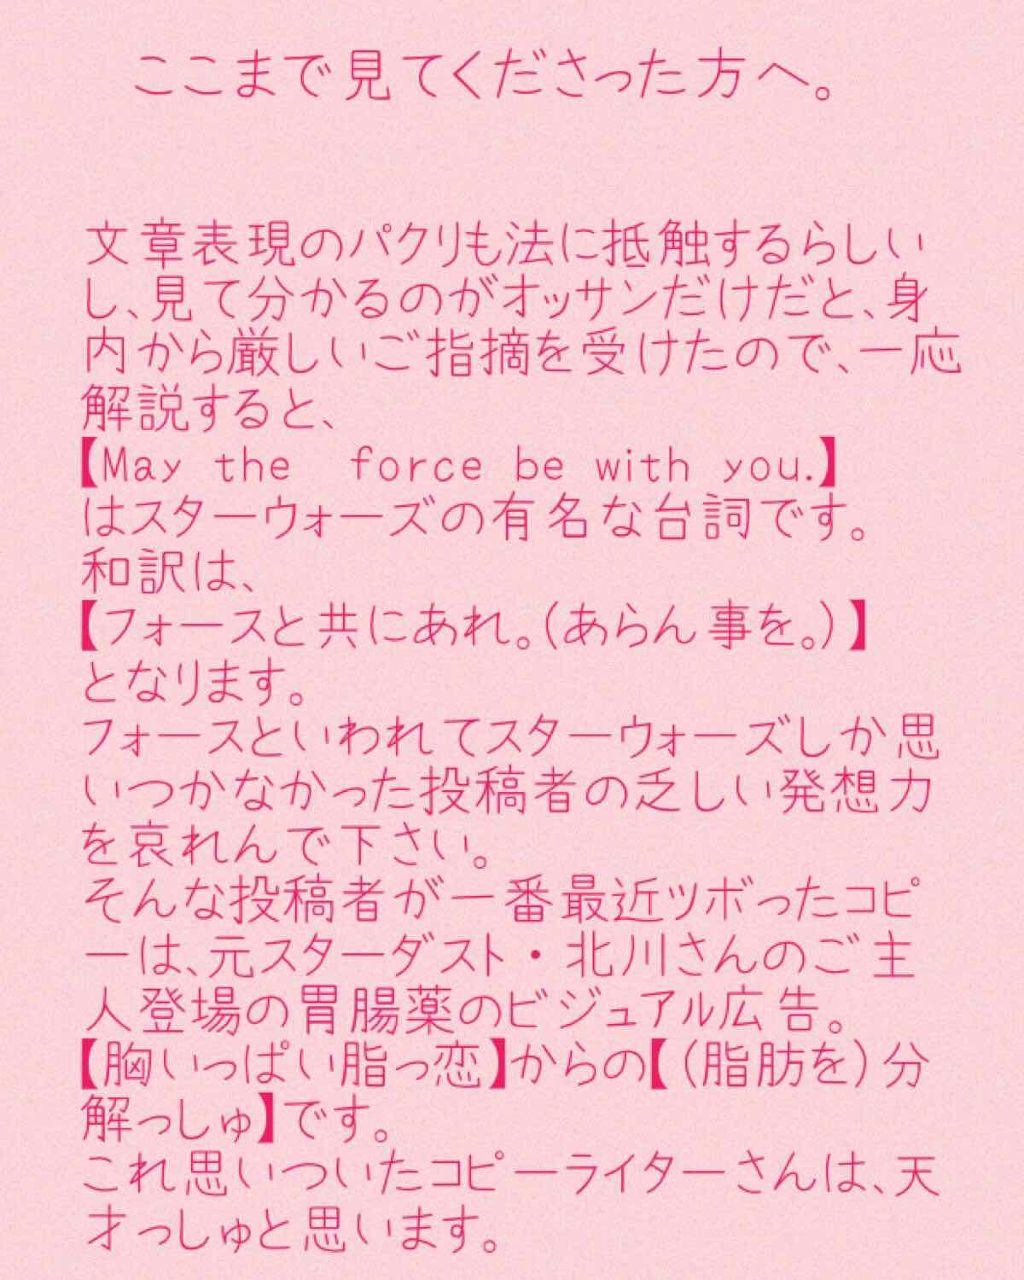 ここまで見てくださった方へ。
文章表現のパクリも法に抵触するらしい
し、見て分かるのがオッサンだけだと、身
内から厳しいご指摘を受けたので、一応
解説すると、
【May the force be with you.】
はスターウォーズの有名な台詞です。
和訳は、
【フォースと共にあれ。(あらん事を。)】
となります。
フォースといわれてスターウォーズしか思
いつかなかった投稿者の乏しい発想力
を哀れんで下さい。
そんな投稿者が一番最近ツボったコピ
ーは、元スターダスト・北川さんのご主
人登場の胃腸薬のビジュアル広告。
【胸いっぱい脂っ恋】からの【(脂肪を)分
解っしゅ】です。
これ思いついたコピーライターさんは、天
才っしゅと思います。